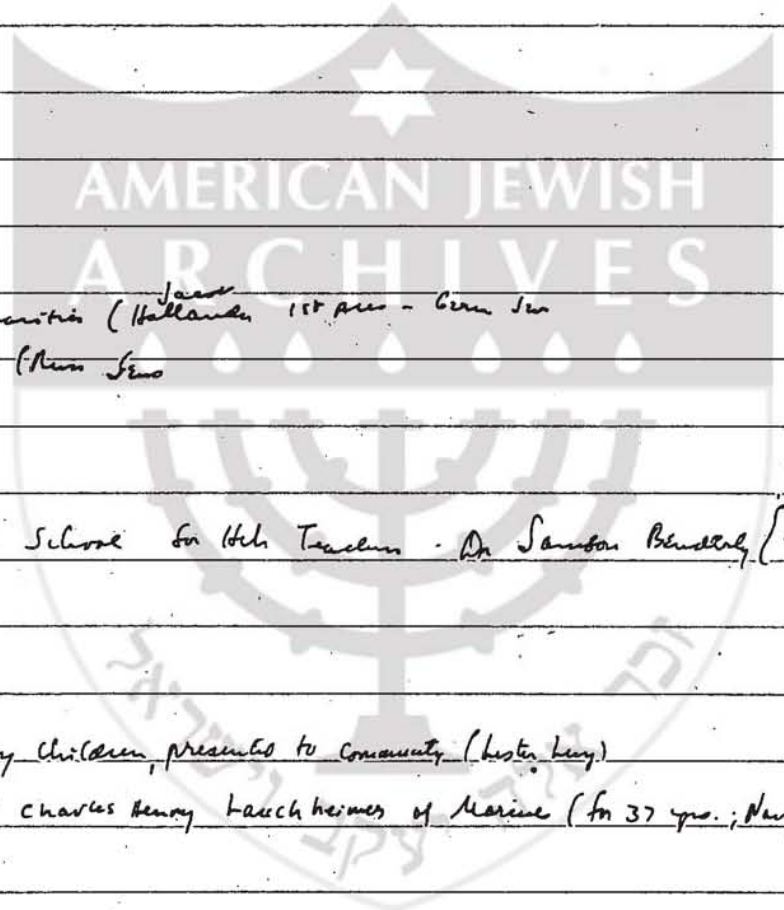 AMERICAN JEWISH
ARCHIVES
Jacob
(Hollander 1st pres - Germ Jew
(Russ Jews
School for Heb Teachers - Dr Samson Benderly (
Children, presented to community (Lester Levy)
Charles Henry Lauchheimer of Marine (for 37 yrs.;
זכר ציד יצקב וישראל